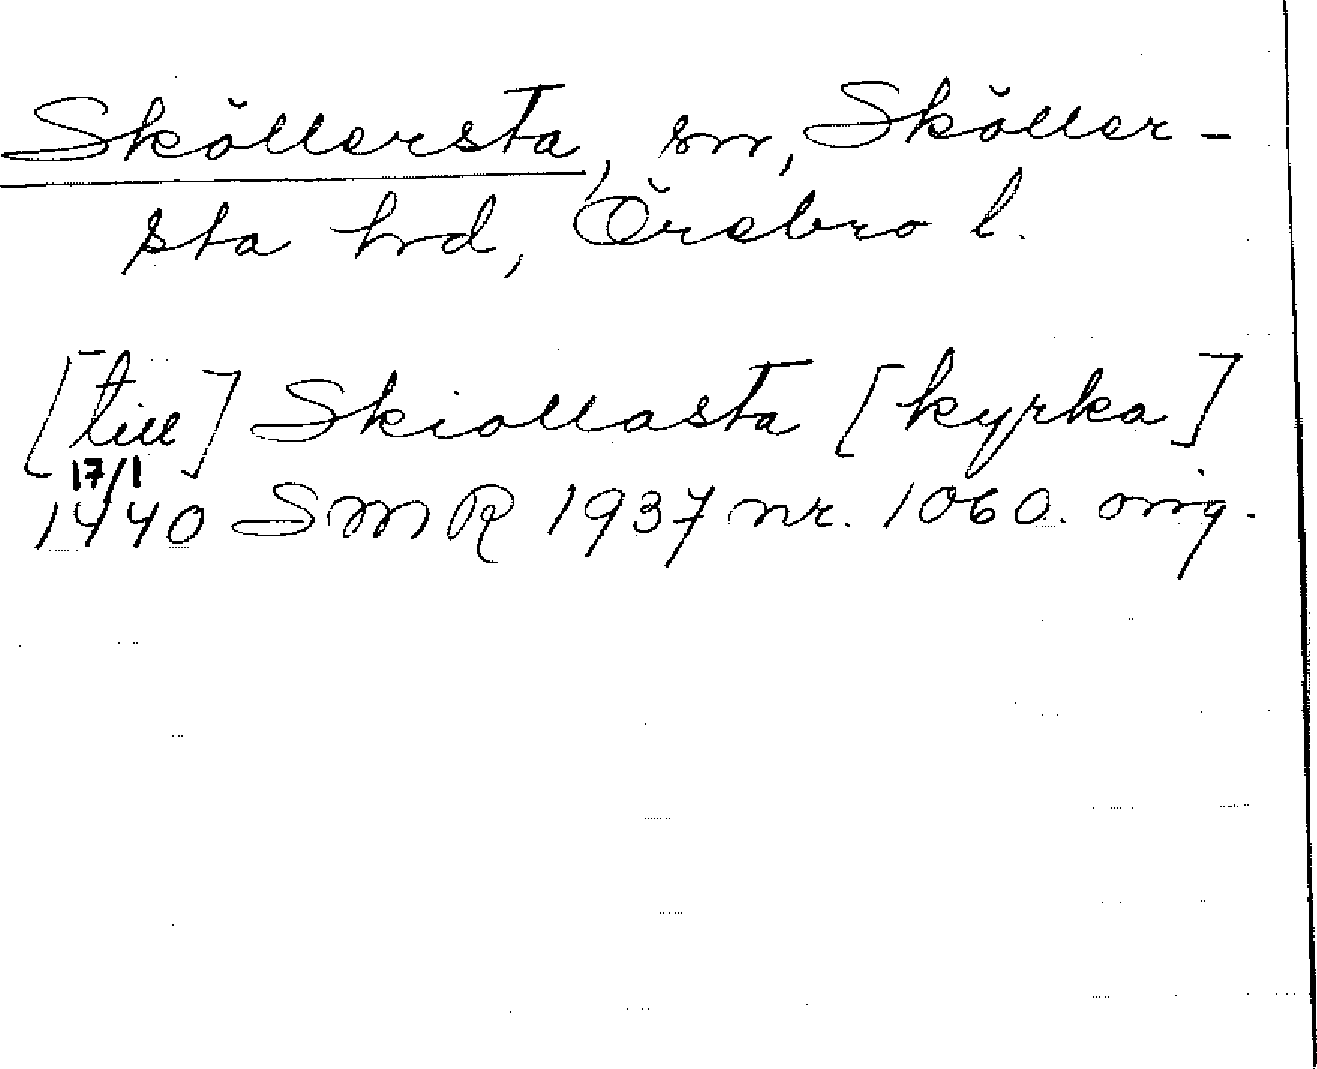 Sköllersta, sn, Sköller-
sta hrd, Örebro l.
[till] Skiollasta [kyrka]
17/1
1440 SMR 1937 nr. 1060. orig.